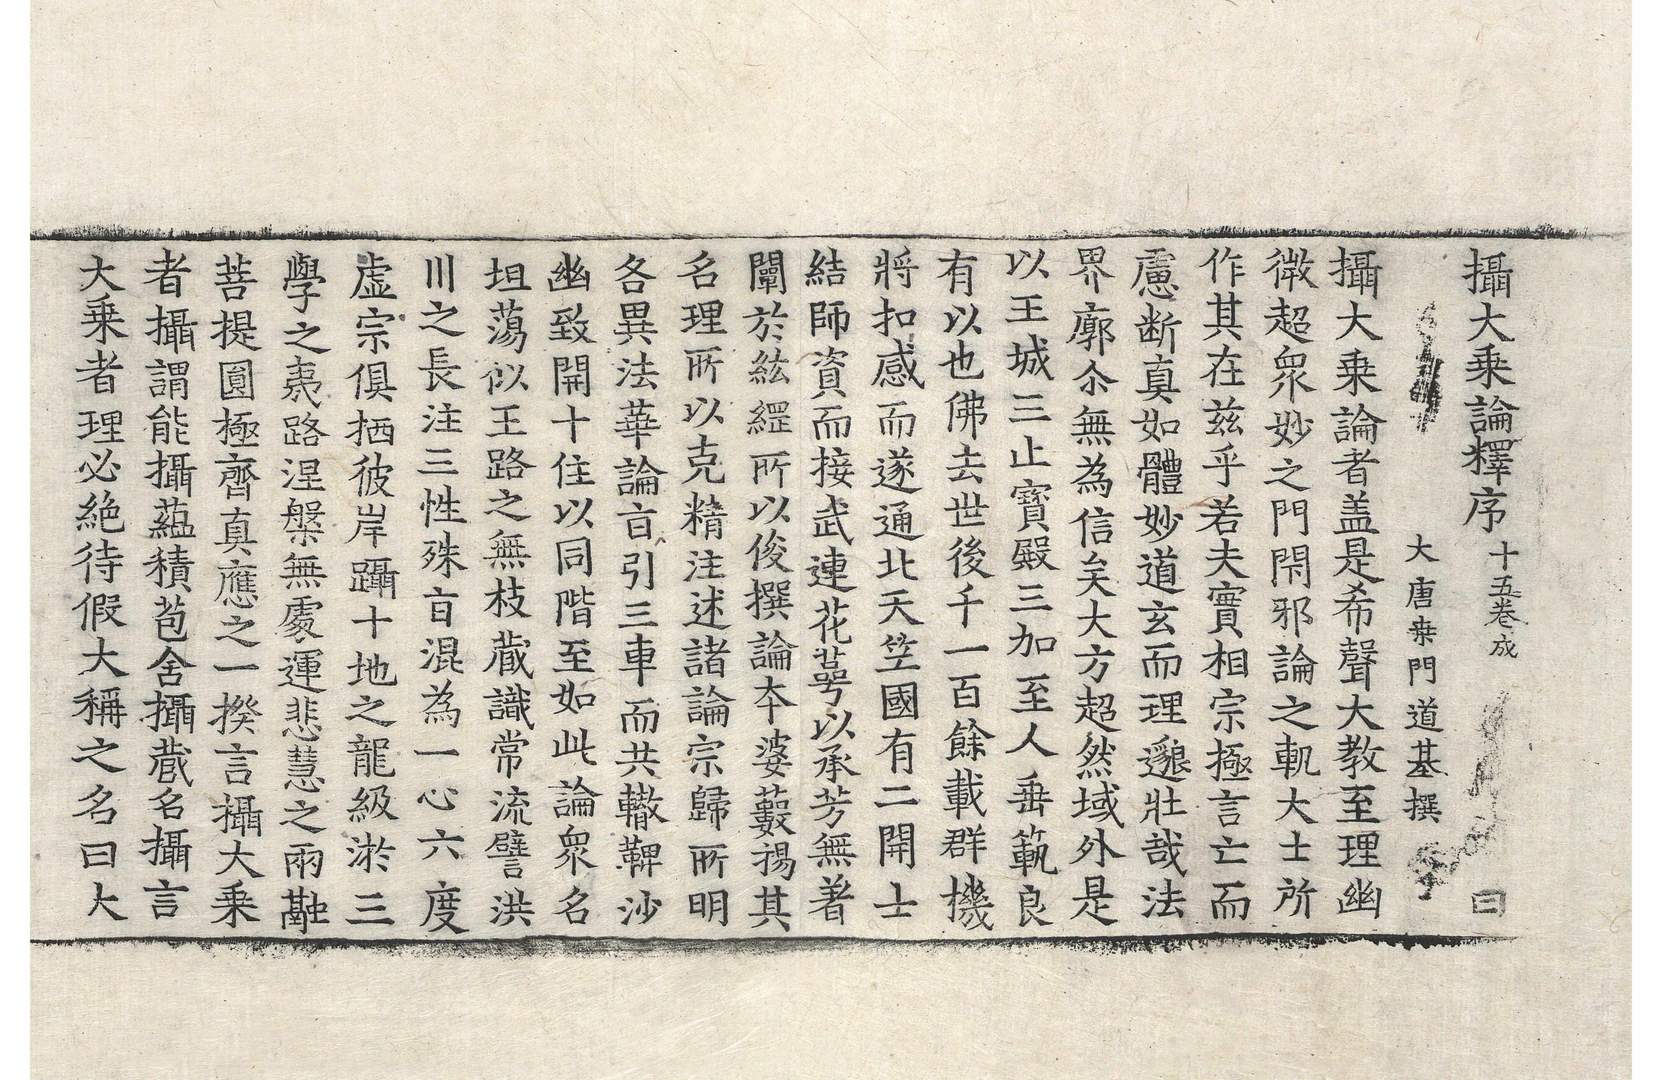 攝大乗論釋序 十五巻成 曰
大唐桒門道基撰
攝大乗論者盖是希聲大教至理幽
微超衆妙之門閇邪論之軌大士所
作其在兹乎若夫實相宗極言亡而
慮断真如體妙道玄而理邈壯哉法
界廓尒無為信矣大方超然域外是
以王城三止寳殿三加至人垂範良
有以也佛去世後千一百餘載群機
將扣感而遂通北天竺國有二開士
結師資而接武連花萼以承芳無著
闡於紘綖所以俊撰論夲婆藪禓其
名理所以克精注述諸論宗歸所明
各異法華論㫖引三車而共轍鞞沙
幽致開十住以同階至如此論衆名
坦蕩似王路之無枝蔵識常流譬洪
川之長注三性殊㫖混為一心六度
虚宗俱栖彼岸躡十地之龍級淤三
學之夷路涅槃無處運悲慧之兩融
菩提圓極齊真應之一揆言攝大乗
者攝謂能攝藴積苞舍攝蔵名攝言
大乗者理必絶待假大稱之名曰大